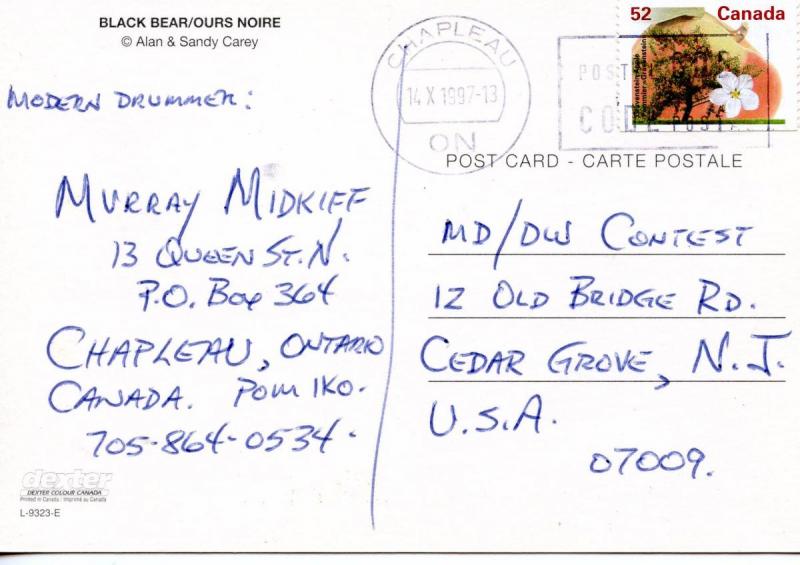 BLACK BEAR/OURS NOIRE
© Alan & Sandy Carey
MODERN DRUMMER:
MURRAY MIDKIFF
13 QUEEN ST. N.
P.O. BOX 364
CHAPLEAU, ONTARIO
CANADA. POM 1KO.
705-864-0534.
dexter
DEXTER COLOUR CANADA
Printed in Canada / Imprimé au Canada
L-9323-E
CHAPLEAU
14 X 1997-13
ON
52 Canada
POST CARD - CARTE POSTALE
MD/DW CONTEST
12 OLD BRIDGE RD.
CEDAR GROVE, N.J.
U.S.A.
07009.